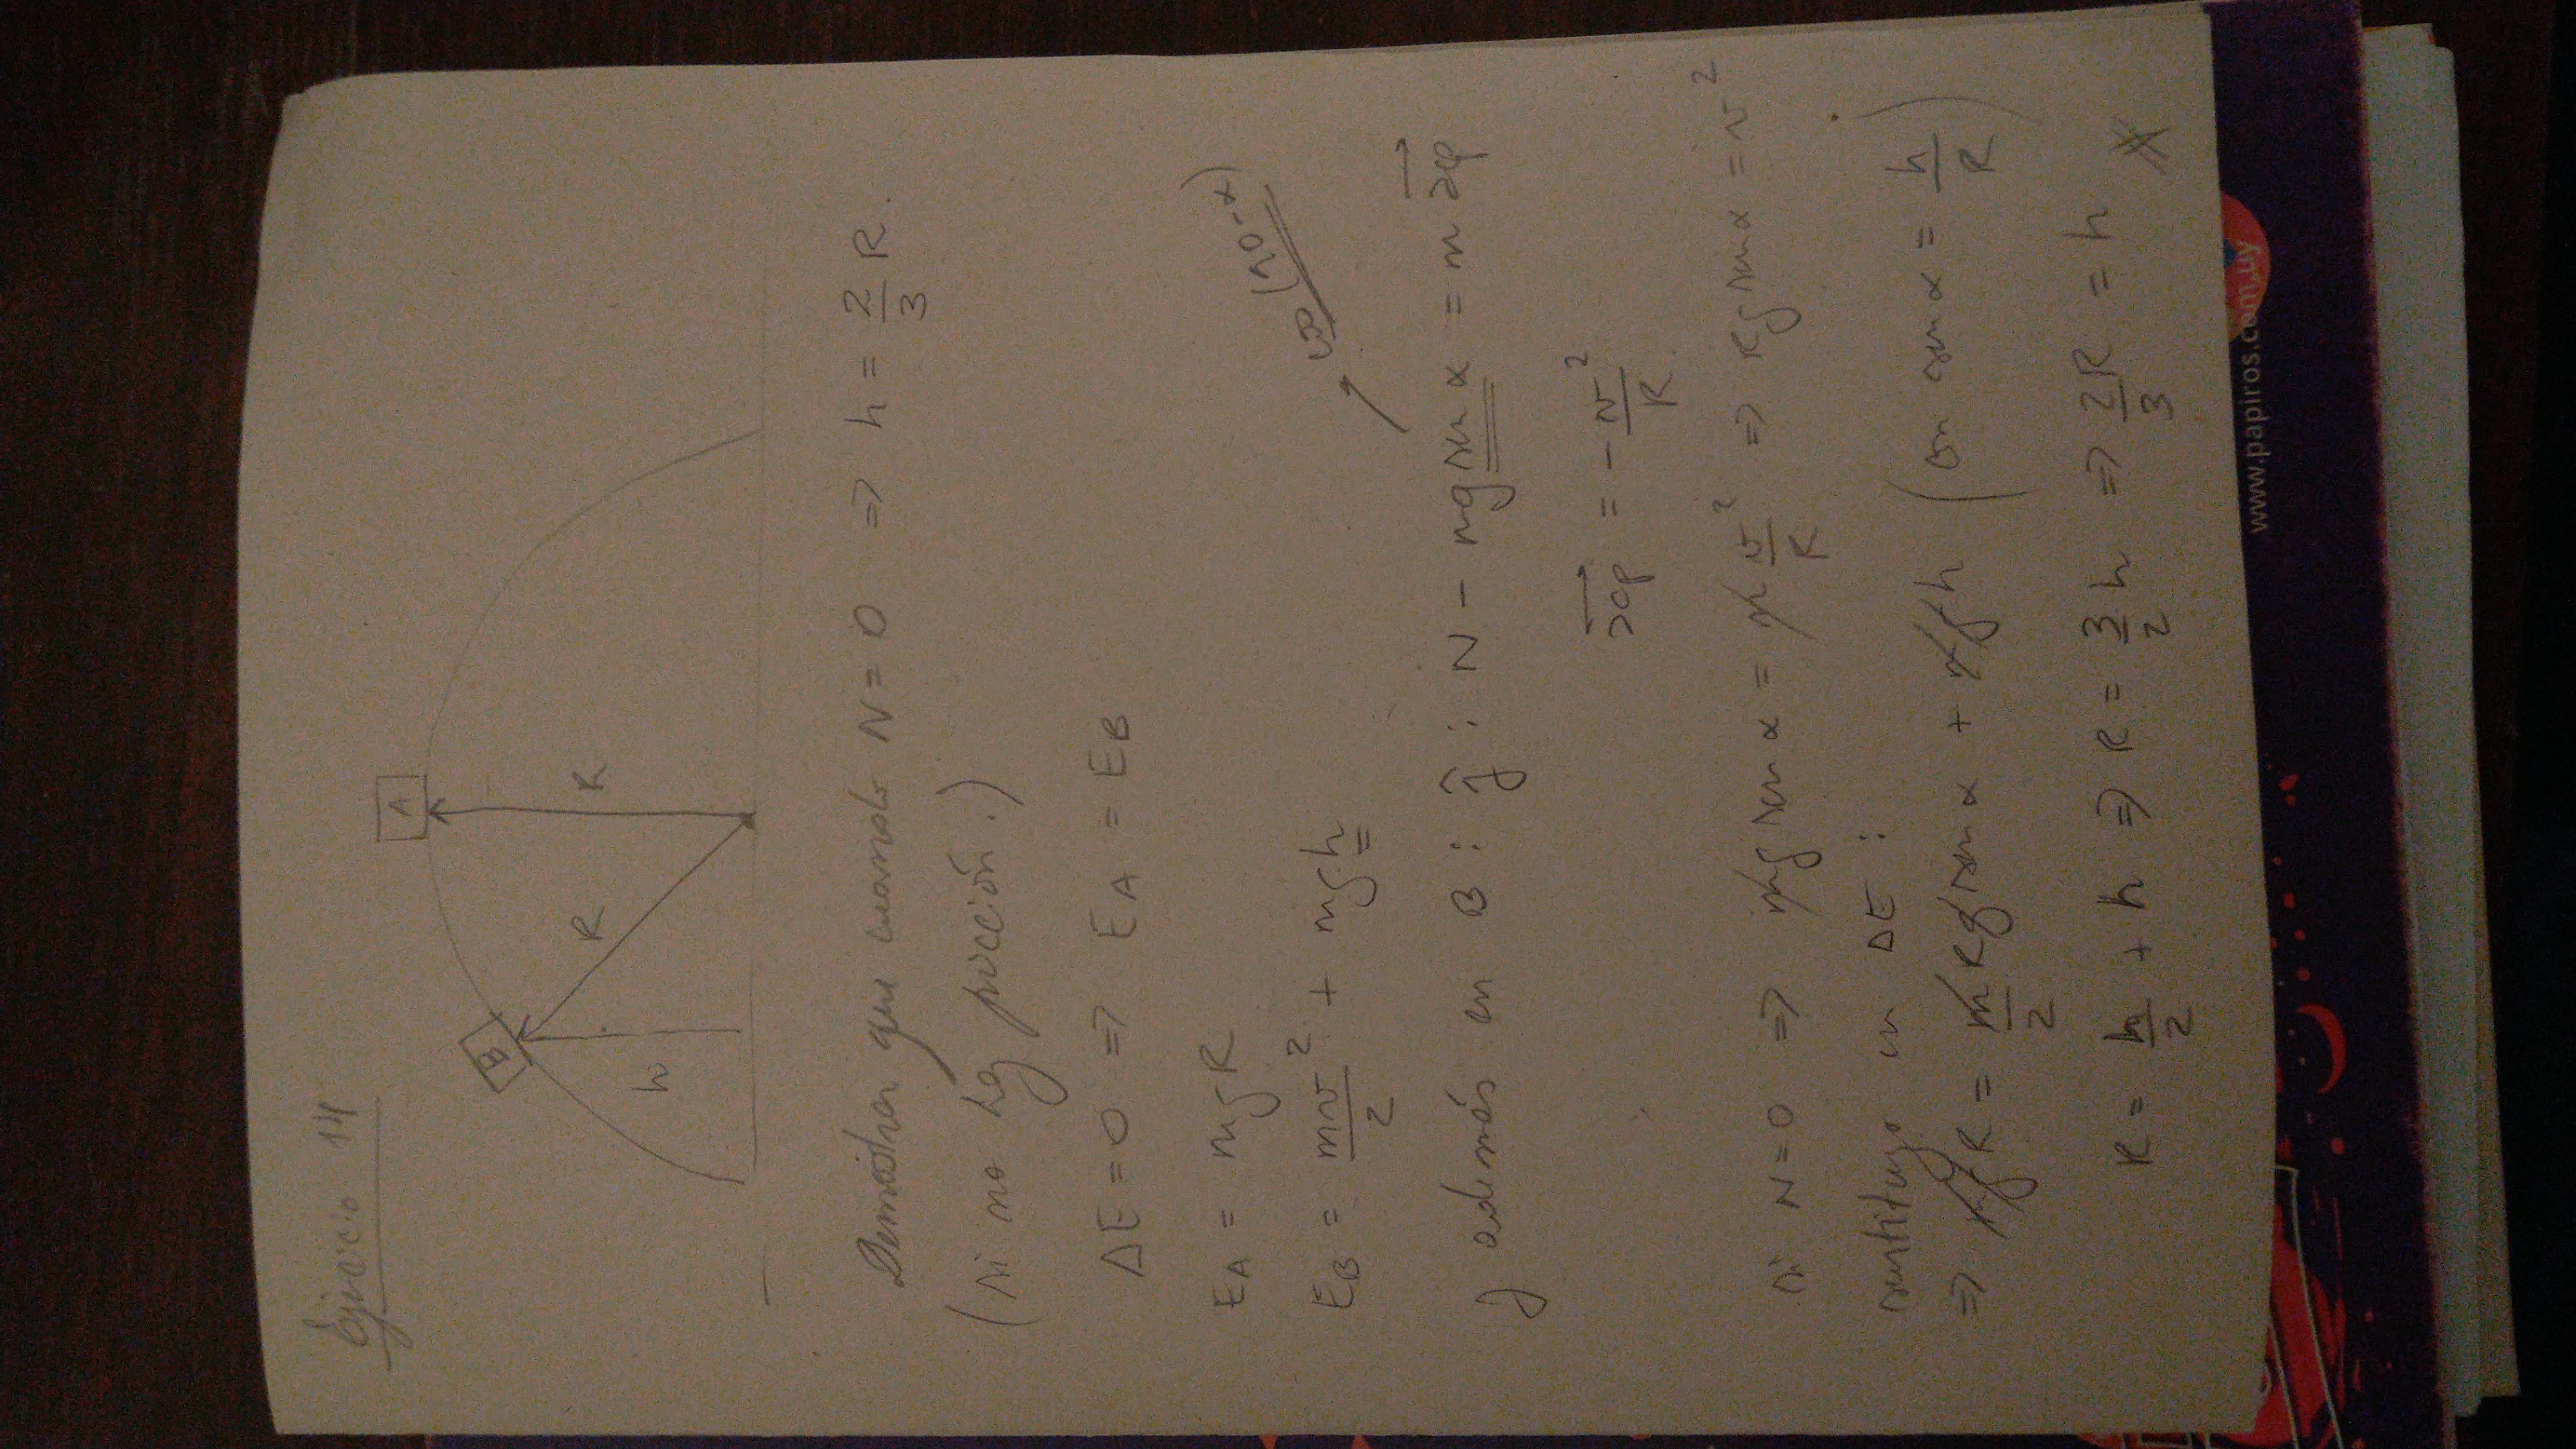 Ejercicio 14
A
B
R
R
h
Demostrar que cuando N = 0 => h = 2/3 R.
(si no hay fricción.)
ΔE = 0 => E_A = E_B
E_A = mgR
E_B = mv²/2 + mgh
cos (90-α)
y además en B: ĵ: N - mg sen α = m acp
acp = - v²/R
si N = 0 => mg sen α = m v²/R => Rg sen α = v²
sustituyo en ΔE:
=> mgR = m/2 Rg sen α + mgh (con sen α = h/R)
R = h/2 + h => R = 3/2 h => 2R/3 = h
www.papiros.com.uy